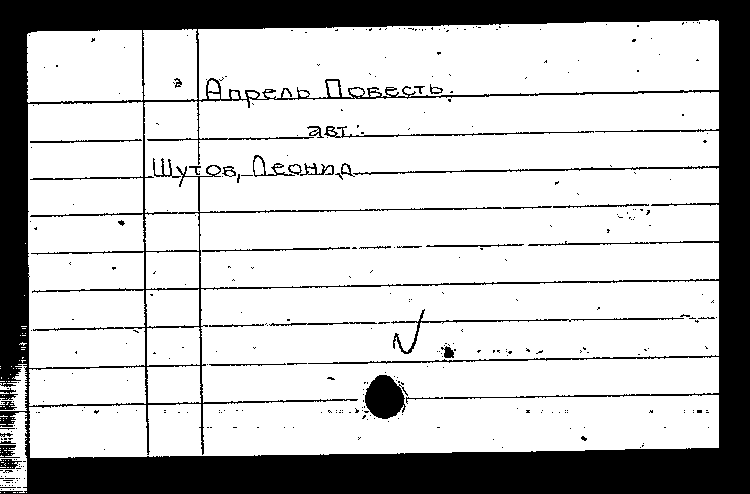 Апрель Повесть.
авт.:
Шутов, Леонид